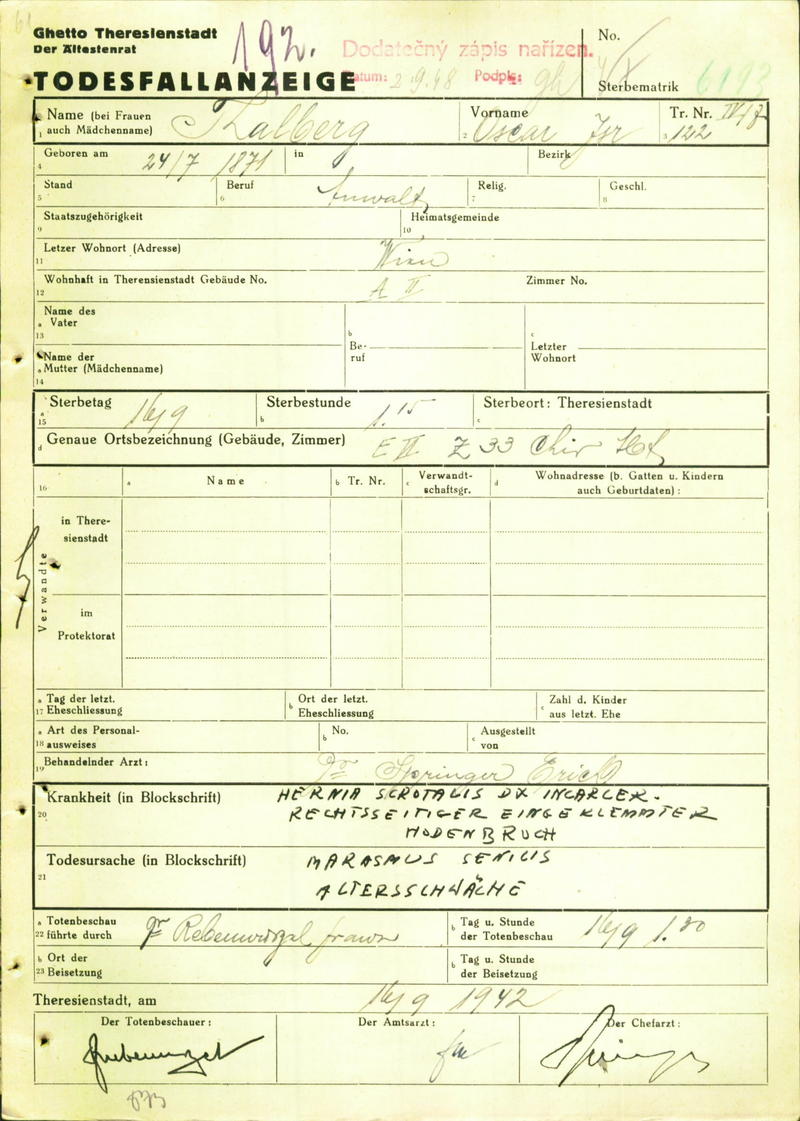 Ghetto Theresienstadt
Der Ältestenrat
192.
Dodatečný zápis nařízen.
Datum: 2.9.48 Podpis:
No.
TODESFALLANZEIGE
Sterbematrik 6193
Name (bei Frauen auch Mädchenname) Kalberg
Vorname Oscar Isr
Tr. Nr. IV/
122
1 2 3
Geboren am 24/7 1871 in Bezirk
4
Stand Beruf Anwalt Relig. Geschl.
5 6 7 8
Staatszugehörigkeit Heimatsgemeinde
9 10
Letzer Wohnort (Adresse) Wien
11
Wohnhaft in Theresienstadt Gebäude No. A II Zimmer No.
12
Name des
a Vater
13
b
Be-
ruf
c
Letzter
Wohnort
Name der
a Mutter (Mädchenname)
14
a Sterbetag 16/9 Sterbestunde 1.15 Sterbeort: Theresienstadt
15 b c
d Genaue Ortsbezeichnung (Gebäude, Zimmer) E II Z 33 Chir
16 a Name b Tr. Nr. c Verwandt-
schaftsgr. d Wohnadresse (b. Gatten u. Kindern
auch Geburtdaten) :
Verwandte
in There-
sienstadt
im
Protektorat
a Tag der letzt.
17 Eheschliessung
b Ort der letzt.
Eheschliessung
c Zahl d. Kinder
aus letzt. Ehe
a Art des Personal-
18 ausweises
b No.
c Ausgestellt
von
Behandelnder Arzt: Dr Springer Erich
19
Krankheit (in Blockschrift) HERNIA SCROTALIS DX INCARCER.
20 RECHTSSEITIGER EINGEKLEMMTER
HODENBRUCH
Todesursache (in Blockschrift) MARASMUS SENILIS
21
ALTERSSCHWÄCHE
a Totenbeschau
22 führte durch Dr Rebenwurzel
b Tag u. Stunde
der Totenbeschau 16/9 1.30
b Ort der
23 Beisetzung
b Tag u. Stunde
der Beisetzung
Theresienstadt, am 16/9 1942
Der Totenbeschauer: Der Amtsarzt: Der Chefarzt: